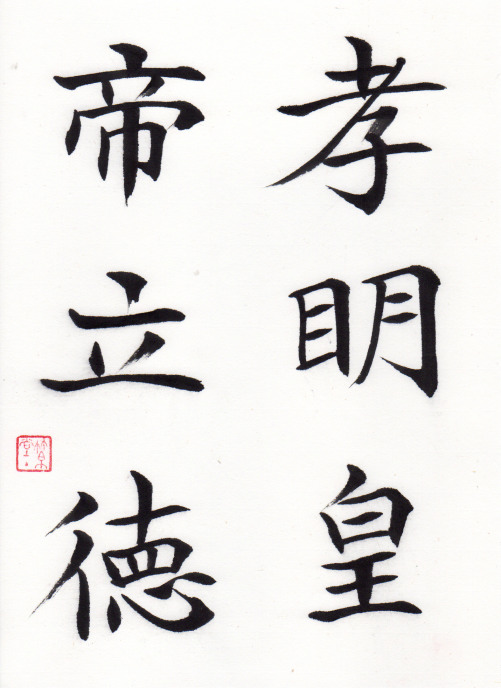 孝明皇
帝立徳